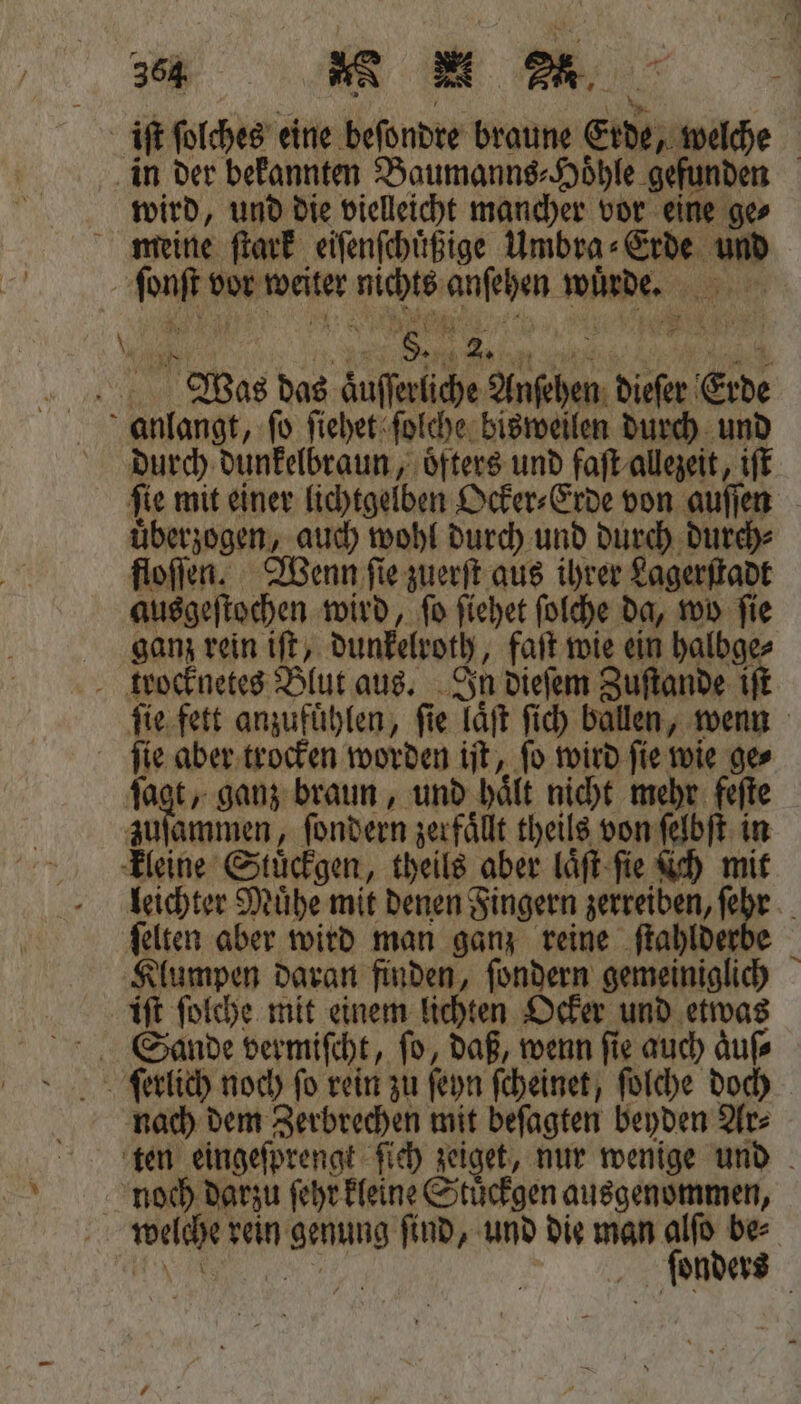 364
iſt ſolches eine beſondre braune Erde, welche
in der bekannten Baumanns-Hoͤhle gefunden
wird, und die vielleicht mancher vor eine ge-
meine ſtark eiſenſchuͤßige Umbra-Erde und
ſonſt vor weiter nichts anſehen wuͤrde.
§. 2.
Was das aͤuſſerliche Anſehen dieſer Erde
anlangt, ſo ſiehet ſolche bisweilen durch und
durch dunkelbraun, oͤfters und faſt allezeit, iſt
ſie mit einer lichtgelben Ocker-Erde von auſſen
uͤberzogen, auch wohl durch und durch durch-
floſſen. Wenn ſie zuerſt aus ihrer Lagerſtadt
ausgeſtochen wird, ſo ſiehet ſolche da, wo ſie
ganz rein iſt, dunkelroth, faſt wie ein halbge-
trocknetes Blut aus. In dieſem Zuſtande iſt
ſie fett anzufuͤhlen, ſie laͤſt ſich ballen, wenn
ſie aber trocken worden iſt, ſo wird ſie wie ge-
ſagt, ganz braun, und haͤlt nicht mehr feſte
zuſammen, ſondern zerfaͤllt theils von ſelbſt in
kleine Stuͤckgen, theils aber laͤſt ſie ſich mit
leichter Muͤhe mit denen Fingern zerreiben, ſehr
ſelten aber wird man ganz reine ſtahlderbe
Klumpen daran finden, ſondern gemeiniglich
iſt ſolche mit einem lichten Ocker und etwas
Sande vermiſcht, ſo, daß, wenn ſie auch aͤuſ-
ſerlich noch ſo rein zu ſeyn ſcheinet, ſolche doch
nach dem Zerbrechen mit beſagten beyden Ar-
ten eingeſprengt ſich zeiget, nur wenige und
noch darzu ſehr kleine Stuͤckgen ausgenommen,
welche rein genung ſind, und die man alſo be-
ſonders